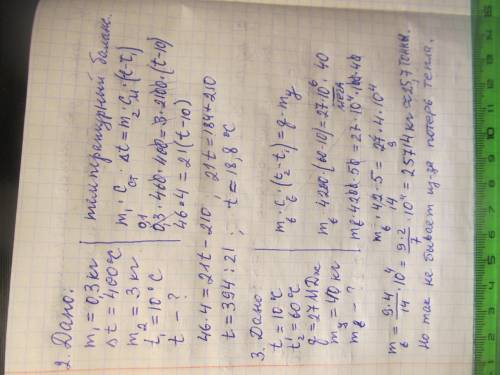 2. Дано:
m₁ = 0,3 кг
Δt = 400°C
m₂ = 3 кг
t₁ = 10°C
t - ?
температурный баланс.
m₁ · c_ст · Δt = m₂ · c_м · (t - t₁)
0,1
0,3 · 460 · 400 = 3 · 2100 · (t - 10)
46 · 4 = 21 (t - 10)
46·4 = 21t - 210; 21t = 184 + 210
t = 394 : 21; t = 18,8 °C
3. Дано
t₁ = 10°C
t₂ = 60°C
q = 27 МДж
m_у = 40 кг
m_в - ?
m_в · c_в · (t₂ - t₁) = q · m_у
m_в 4200 (60 - 10) = 27·10⁶ · 40
мега
m_в · 4200 · 50 = 27·10⁶ · 40
m_в · 42·5 = 27·4·10⁴
14 9
m_в = 9·4/14 · 10⁴ = 9·2/7 · 10⁴ = 25714 кг ≈ 25,7 тонны.
Но так не бывает из-за потерь тепла.